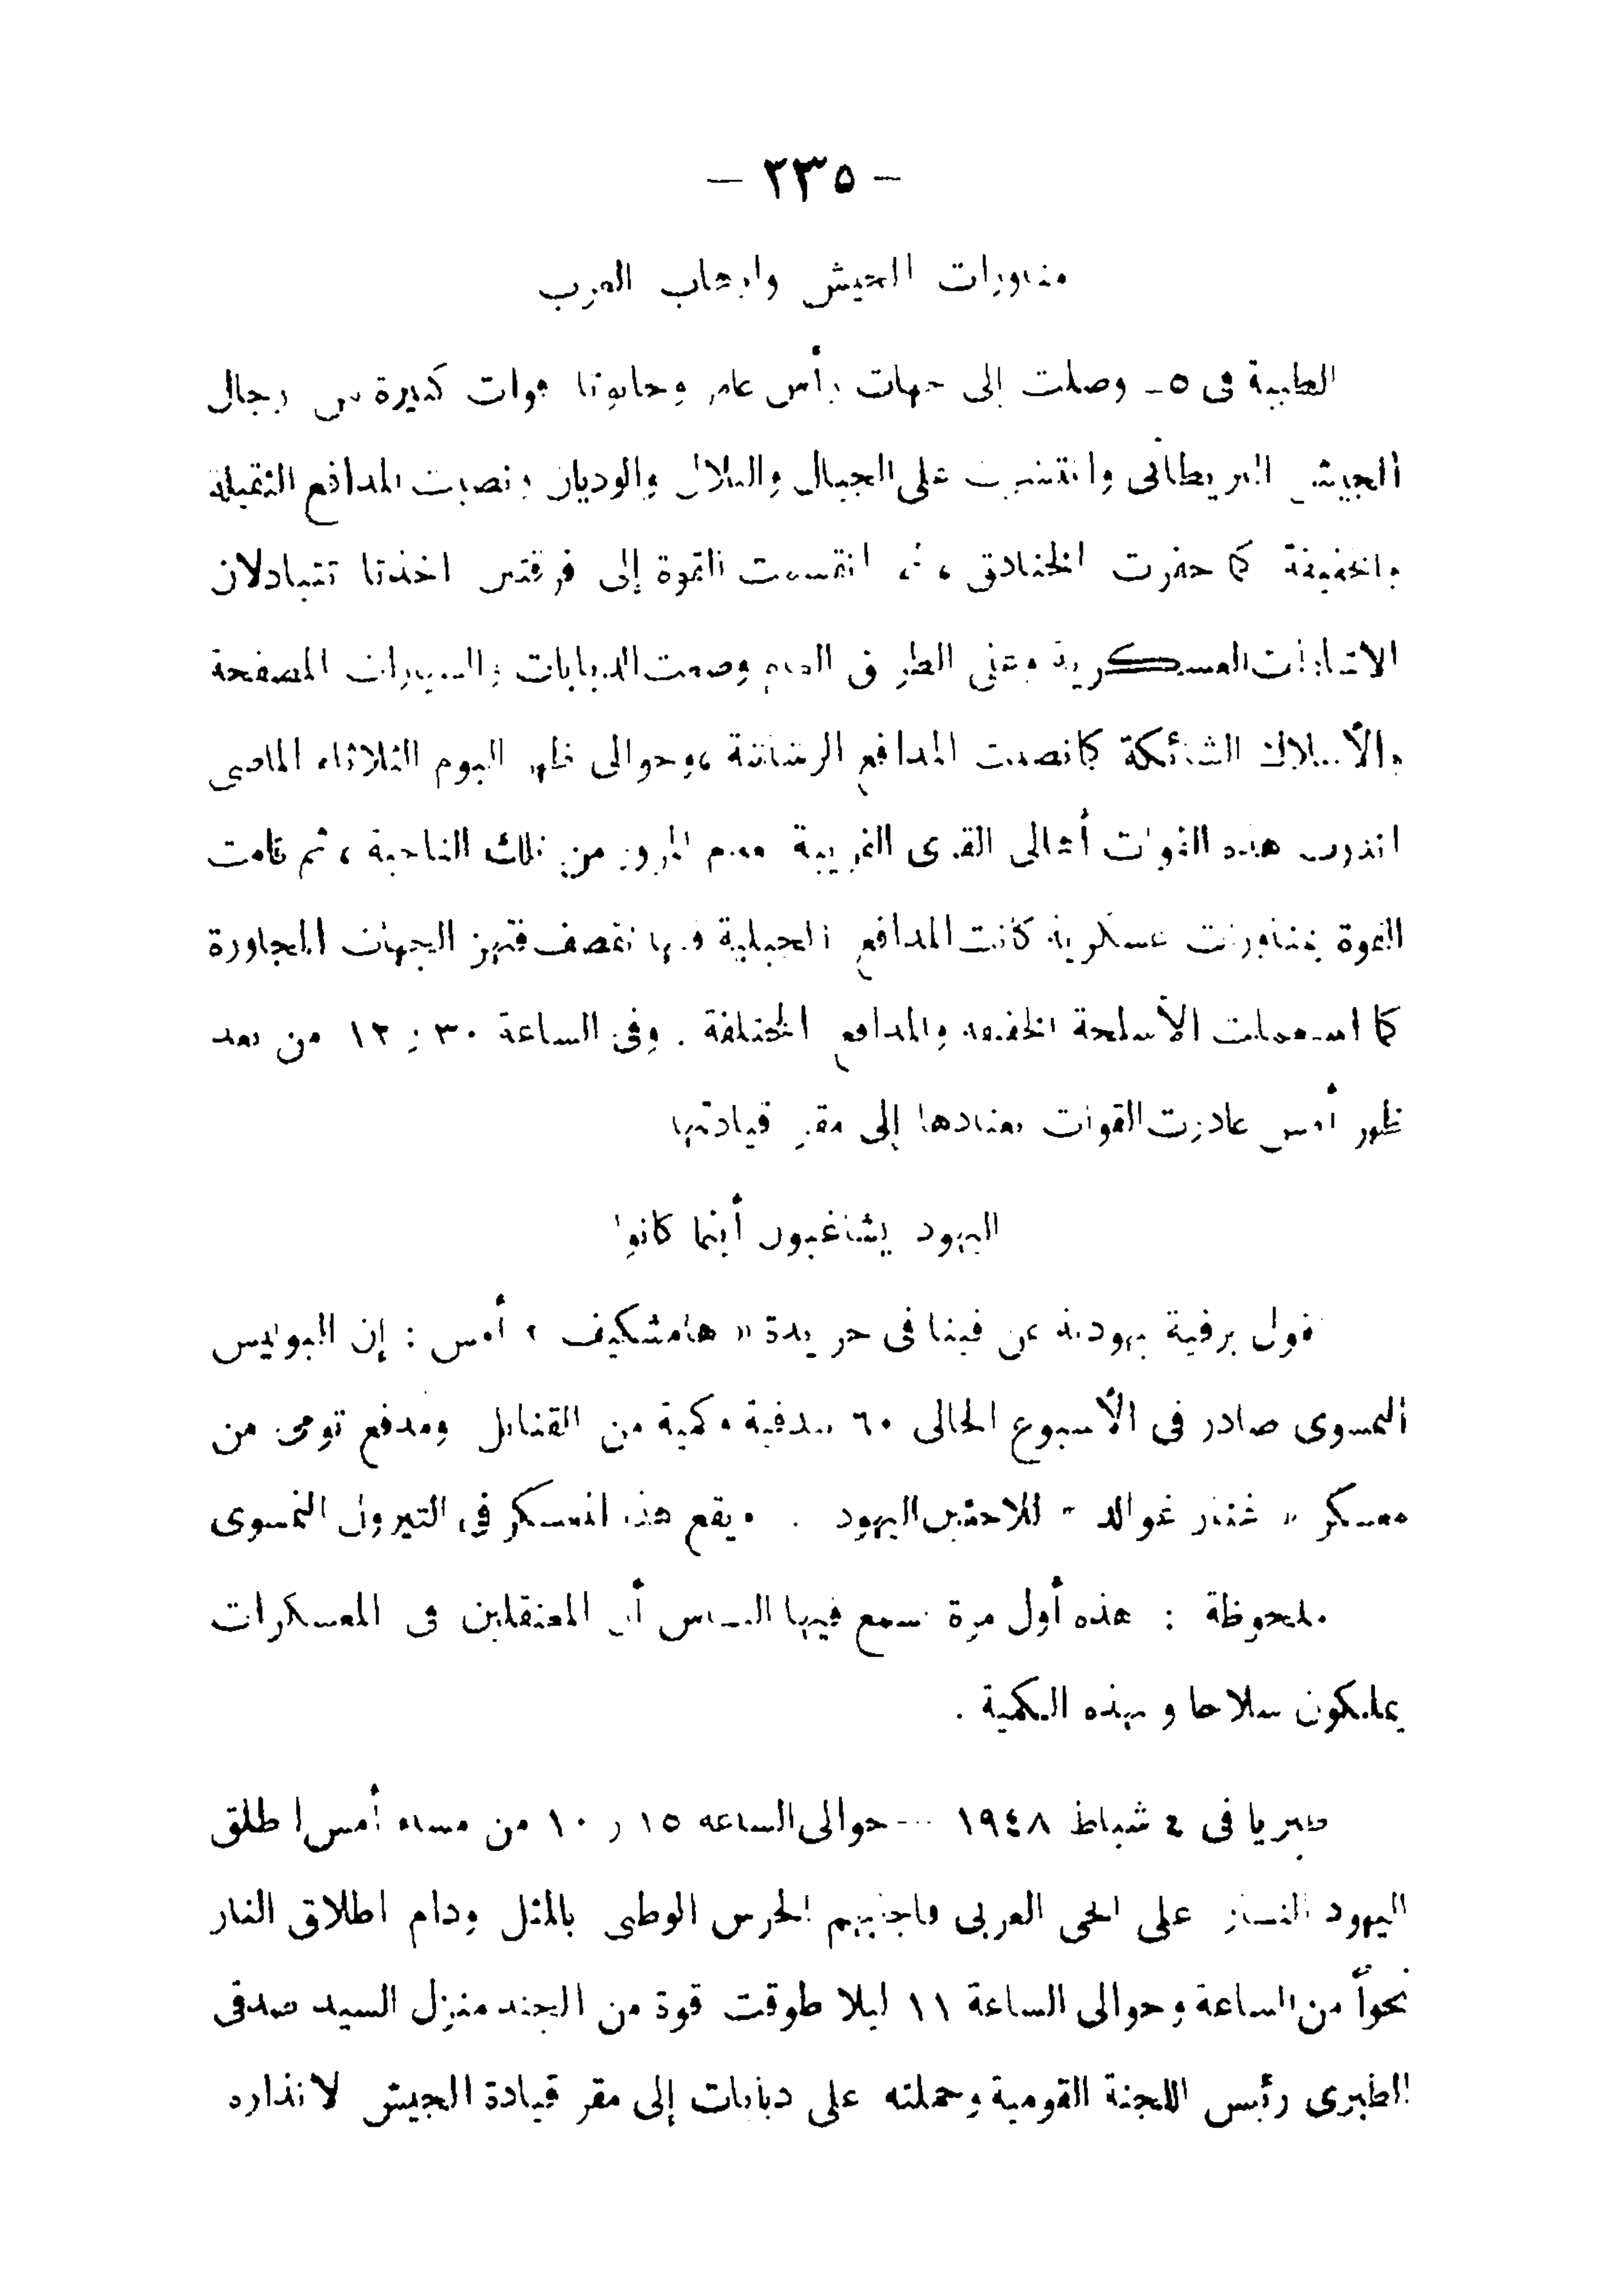 — ٢٣٥ —
مناورات الجيش وارهاب العرب
الطيبة فى ٥ـ وصلت إلى جهات رأس عامر وحانوتا قوات كبيرة من رجال
الجيش البريطانى وانتشرت على الجبال والتلال والوديان ونصبت المدافع الثقيلة
والخفيفة كما حفرت الخنادق ، ثم انقسمت القوة إلى فرقتين اخذتا تتبادلان
الاشارات العسكرية وعلى الطرق العام وضعت الدبابات والسيارات المصفحة
والأسلاك الشائكة كما نصبت المدافع الرشاشة ، وحوالى ظهر اليوم الثلاثاء الماضى
انذرت هذه القوات أهالى القرى القريبة بعدم المرور من تلك الناحية ، ثم قامت
القوة بمناورات عسكرية كانت المدافع الجبلية فيها تقصف فتهز الجهات المجاورة
كما استعملت الأسلحة الخفيفة والمدافع المختلفة . وفى الساعة ٣٠ ; ١٢ من بعد
ظهر أمس غادرت القوات بعتادها إلى مقر قيادتها
اليهود يشاغبون أينما كانوا
تقول برقية يهودية عن فينا فى جريدة « هامشكيف » أمس : إن البوليس
النمسوى صادر فى الأسبوع الحالى ٦٠ بندقية وكمية من القنابل ومدفع تومى من
معسكر « غوالد » للاجئين اليهود . ويقع هذا المعسكر فى التيرول النمسوى
ملحوظة : هذه أول مرة يسمع فيها الناس أن المعتقلين فى المعسكرات
يملكون سلاحا وبهذه الكمية .
طبريا فى ٤ شباط ١٩٤٨ — حوالى الساعه ١٥ ر ١٠ من مساء أمس اطلق
اليهود النار على الحى العربى فاجابهم الحرس الوطنى بالمثل ودام اطلاق النار
نحواً من الساعة وحوالى الساعة ١١ ليلا طوقت قوة من الجند منزل السيد صدقى
الطبرى رئيس اللجنة القومية وحملته على دبابات إلى مقر قيادة الجيش لانذاره